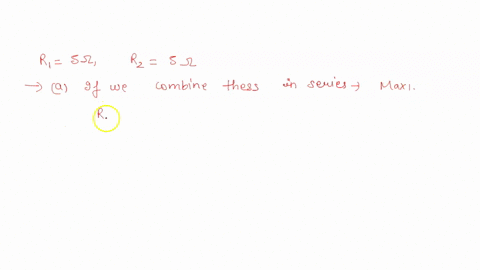 R₁ = 5Ω, R₂ = 5Ω
→ (a) If we combine thess in series → Max.
R.